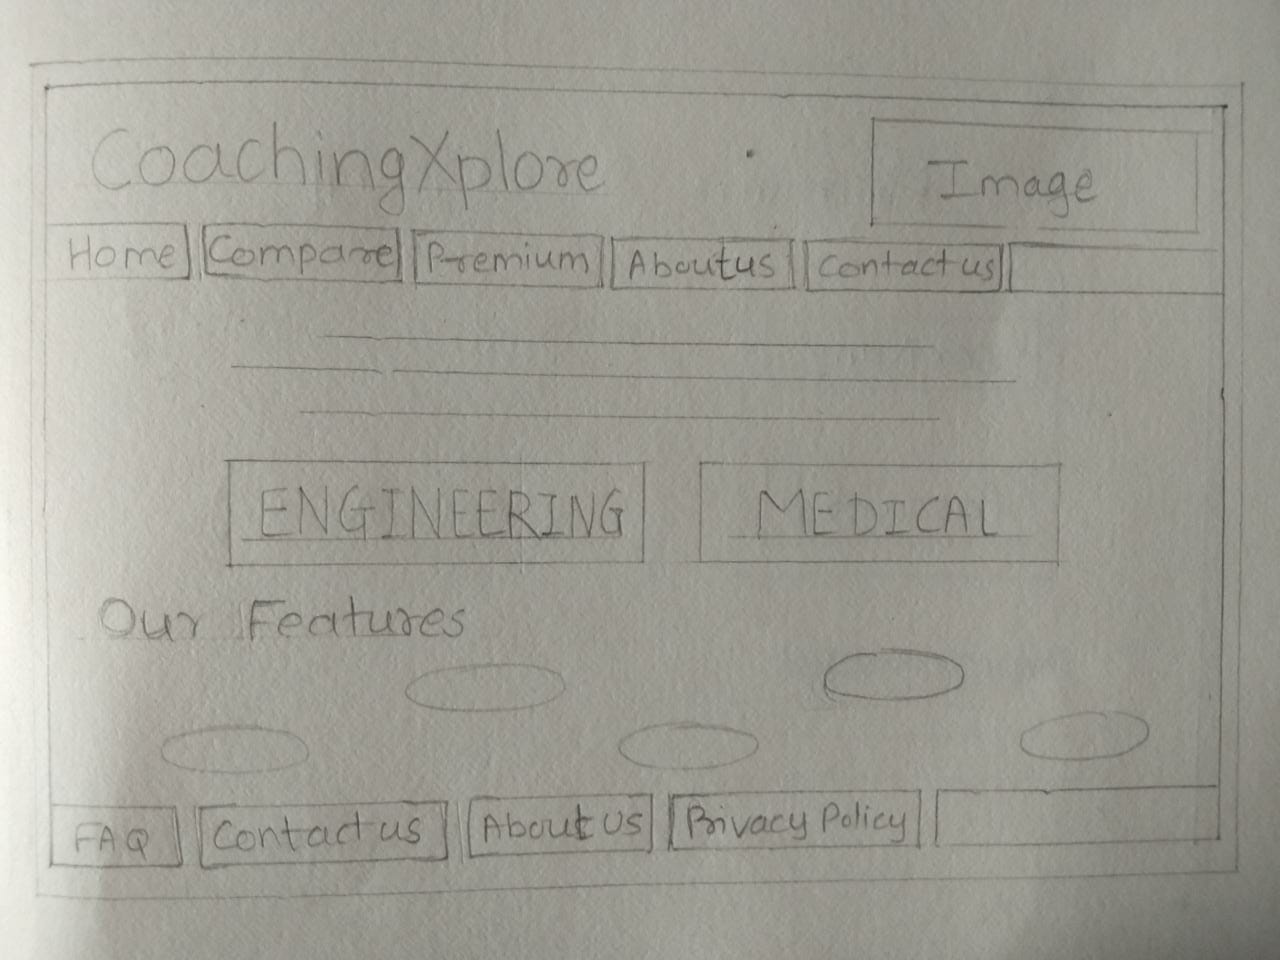 CoachingXplore
Image
Home Compare Premium About us Contact us
ENGINEERING MEDICAL
Our Features
FAQ Contact us About Us Privacy Policy